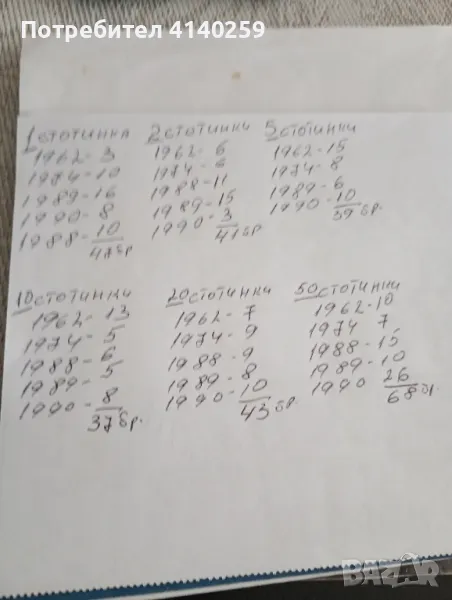 Потребител 4140259
1 стотинка
1962-3
1974-10
1989-16
1990-8
1988-10
47бр.
2 стотинки
1962-6
1974-6
1988-11
1989-15
1990-3
41бр
5 стотинки
1962-15
1974-8
1989-6
1990-10
39бр.
10 стотинки
1962-13
1974-5
1988-6
1989-5
1990-8
37бр.
20 стотинки
1962-7
1974-9
1988-9
1989-8
1990-10
43бр.
50 стотинки
1962-10
1974 7
1988-15
1989-10
1990 26
68бр.
BAZAR